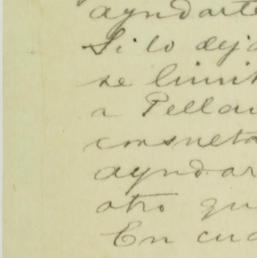 ayudarte
Si lo dej
se limit
a Pella
consulta
ayudar
otro qu
En cua